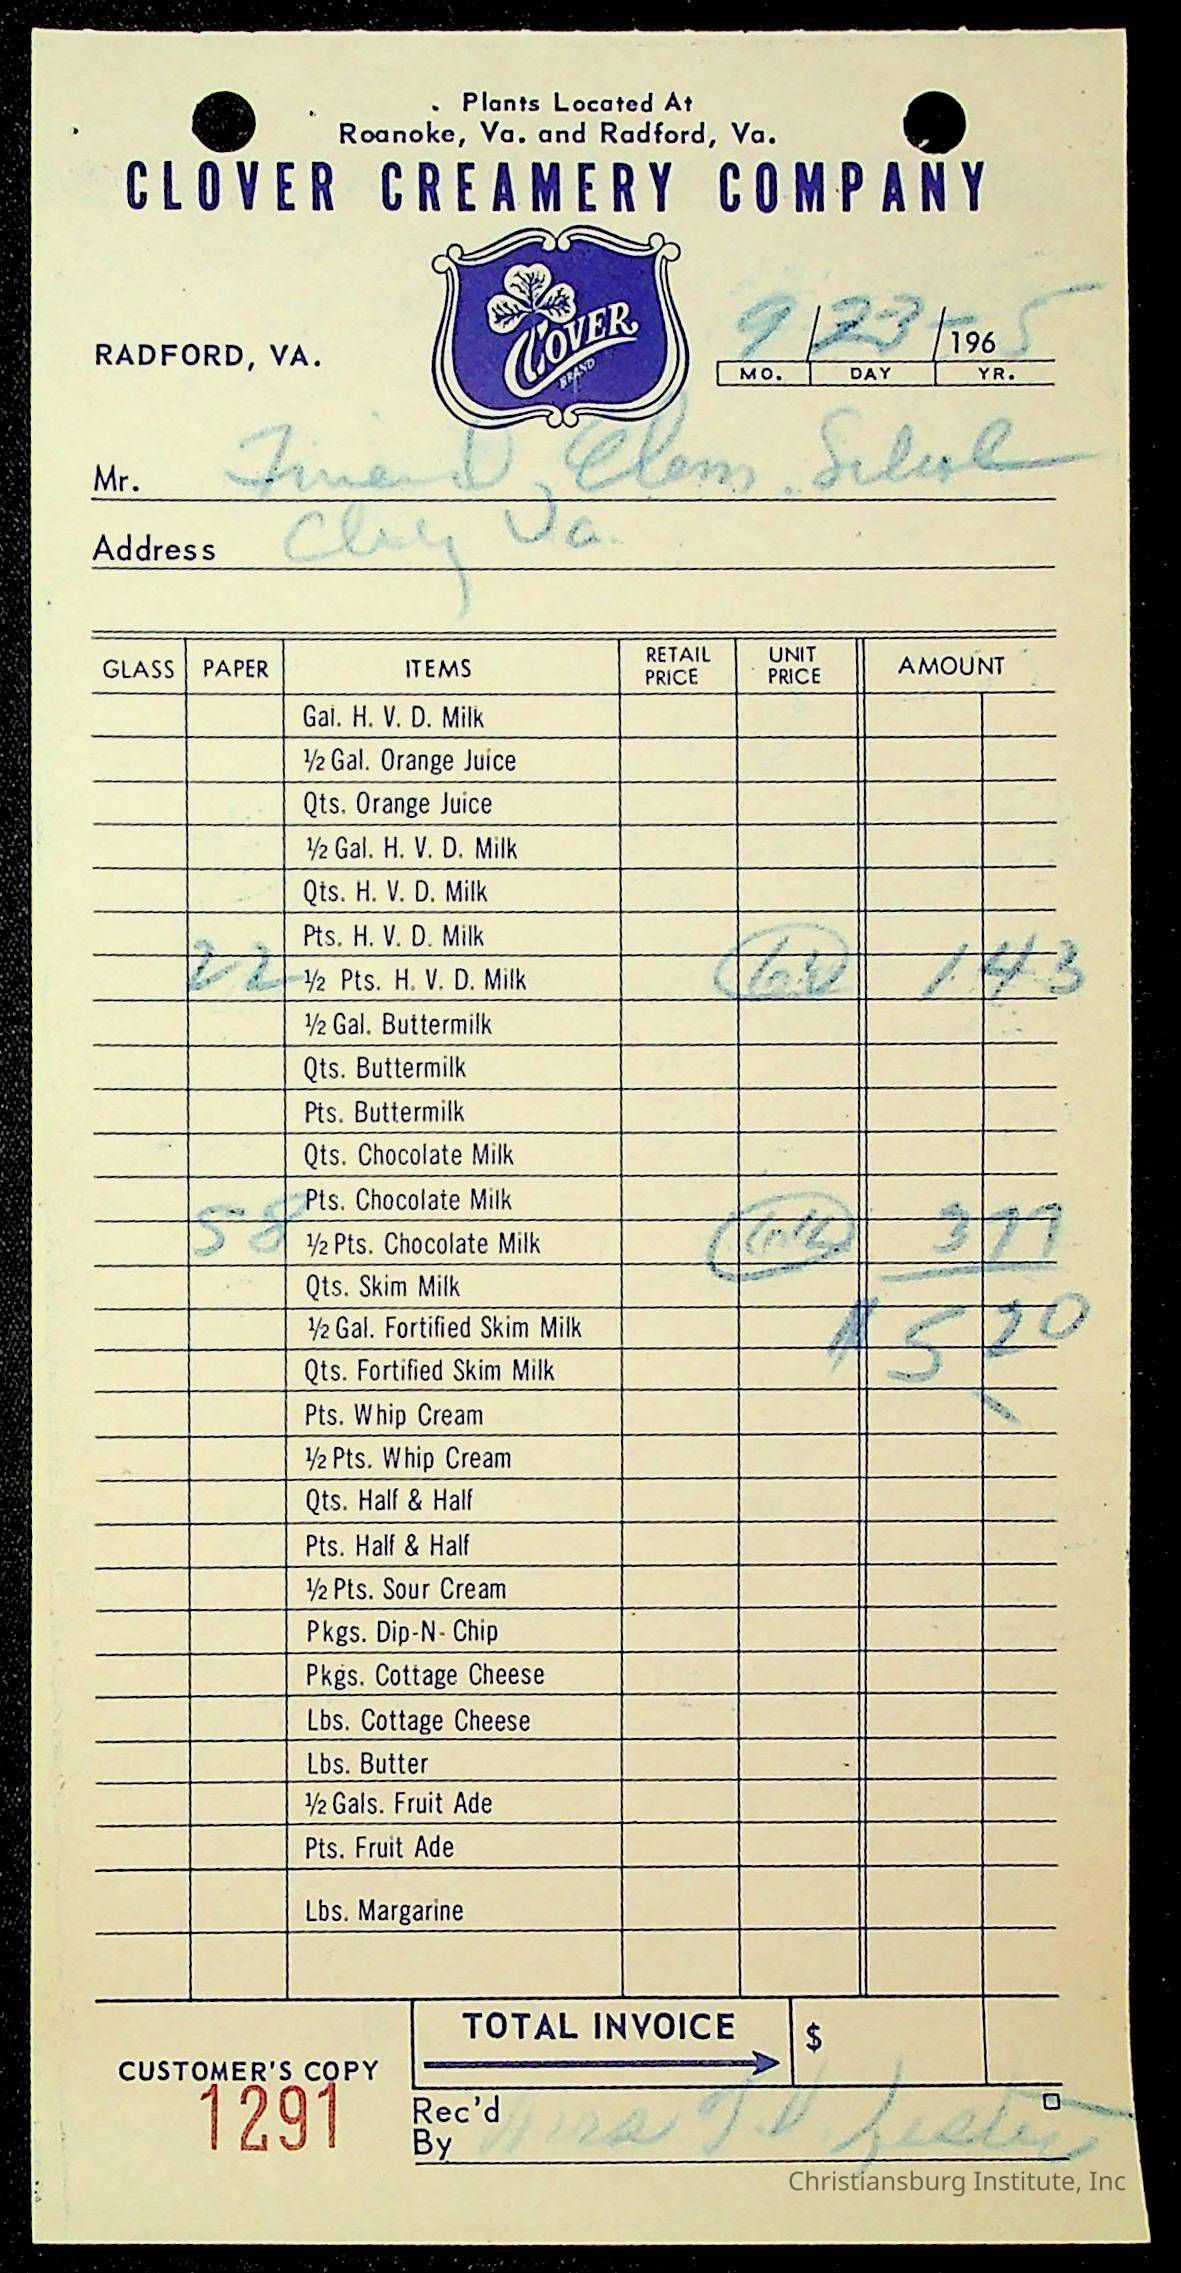 Plants Located At
Roanoke, Va. and Radford, Va.
CLOVER CREAMERY COMPANY
CLOVER
BRAND
RADFORD, VA.
9/23/1965
MO. DAY YR.
Mr. Friend, Elem. School
Address Va.
GLASS PAPER ITEMS RETAIL PRICE UNIT PRICE AMOUNT
Gal. H. V. D. Milk
½ Gal. Orange Juice
Qts. Orange Juice
½ Gal. H. V. D. Milk
Qts. H. V. D. Milk
Pts. H. V. D. Milk
22 ½ Pts. H. V. D. Milk 1 43
½ Gal. Buttermilk
Qts. Buttermilk
Pts. Buttermilk
Qts. Chocolate Milk
Pts. Chocolate Milk
58 ½ Pts. Chocolate Milk 3 77
Qts. Skim Milk
½ Gal. Fortified Skim Milk $ 5 20
Qts. Fortified Skim Milk
Pts. Whip Cream
½ Pts. Whip Cream
Qts. Half & Half
Pts. Half & Half
½ Pts. Sour Cream
Pkgs. Dip-N-Chip
Pkgs. Cottage Cheese
Lbs. Cottage Cheese
Lbs. Butter
½ Gals. Fruit Ade
Pts. Fruit Ade
Lbs. Margarine
TOTAL INVOICE $
CUSTOMER'S COPY
1291
Rec'd By Mrs Lester
Christiansburg Institute, Inc